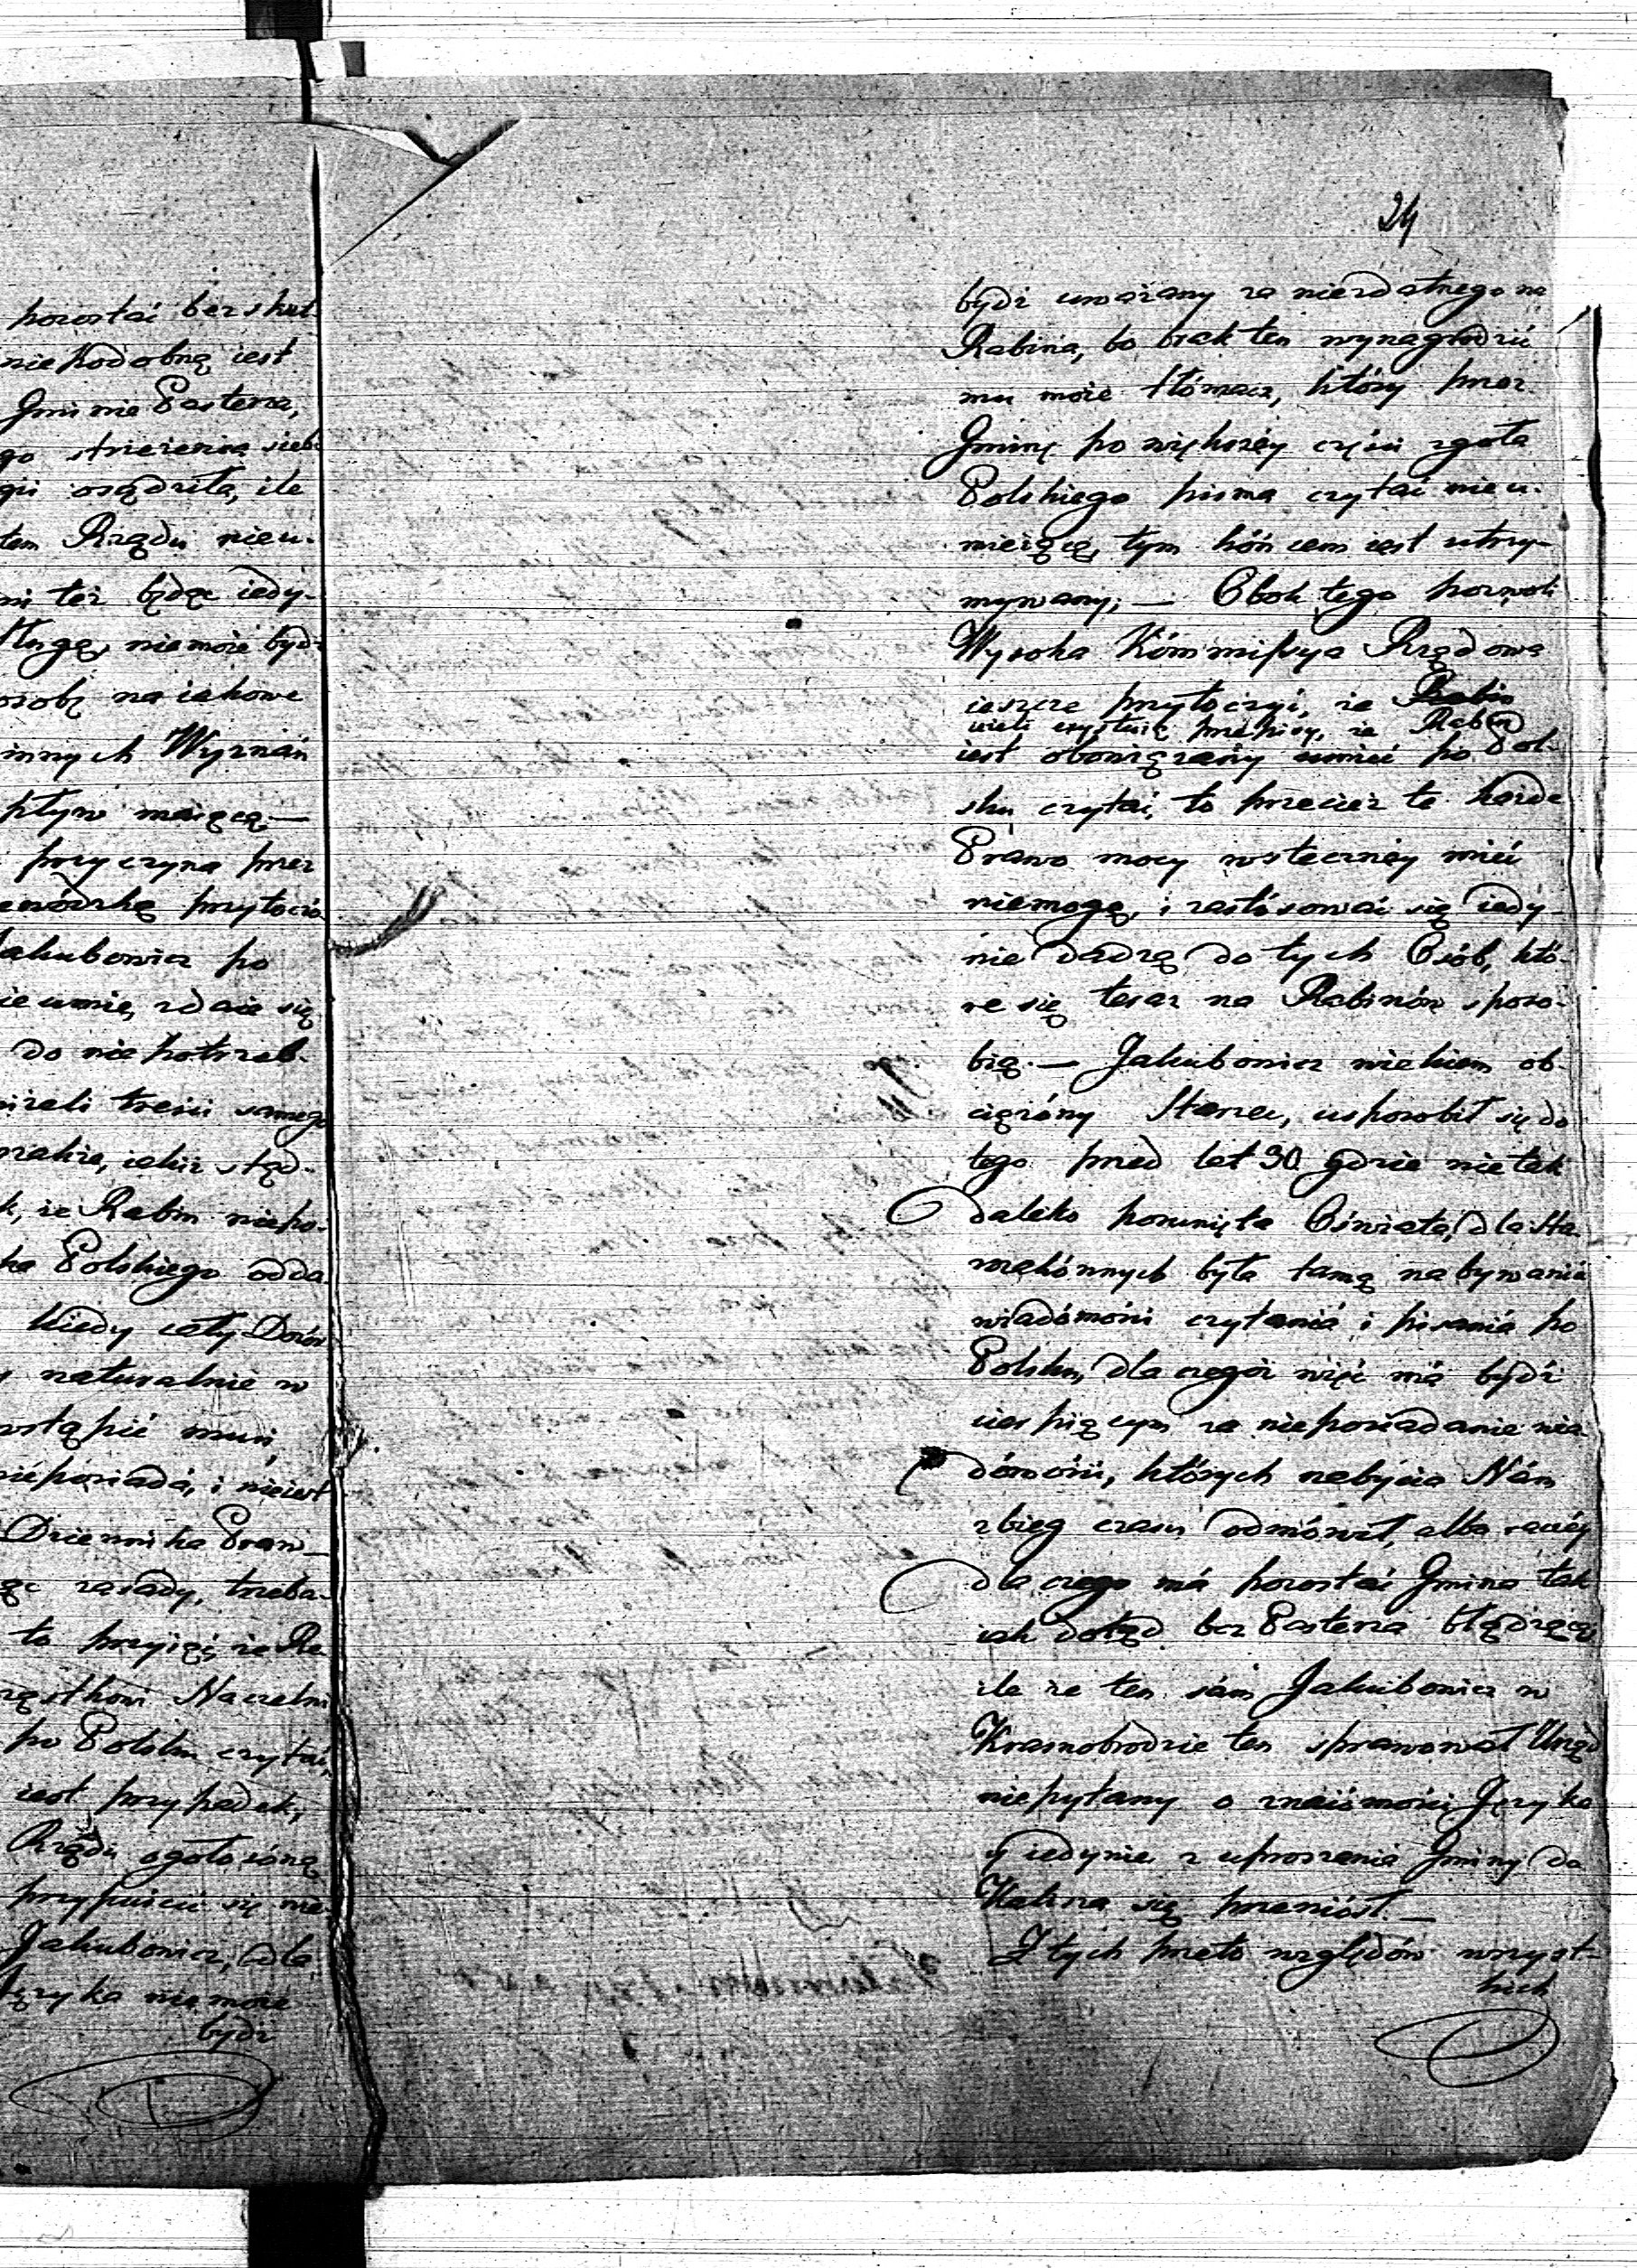 pozostać bez skut
niepodobną iest
Gminie Pasterza,
go strzeżenia sieb
gii osądziła, ile
tem Rządu nieu-
mi też będąc iedy-
sługą, niemoże bydź
osobę na iakowe
innych Wyznań
pływ maiącą;—
przyczyna przez
przytoczo
Jakubowicz po
nieumie, zdaie się
do niepotrzeb-
treści samego
iakiż stąd
k, że Rabin niepo-
ka Polskiego odda
kiedy cały Dozór
naturalnie w
wstąpić musi
nieposiadá, i nieiest
Dziennika Praw—
ąc zasady, trzeba-
to przyiąć, że Ra
Naczelni
po Polsku czytać,
iest przypadek,
Rządu ogołosóną
przypuścić się nie
Jakubowicz, dla
Języka niemoże
bydź
24
bydź uważany za niezdatnego na
Rabina, bo brak ten wynagrodzić
mu może tłómacz, który przez
Gminę po większéy części zgoła
Polskiego pisma czytać nieu-
mieiącą, tym kóńcem iest utrzy-
mywany;— Obok tego pozwoli
Wysoka Kómmissya Rządowa
ieszcze przytoczyć, że Rabin
ieżeli exystuią przepisy, że Rabin
iest obowiązány umieć po Pol-
sku czytać, to przecież te każde
Prawo mocy wstecznéy mieć
niemogą, i zastósować się iedy-
nie dadzą do tych Osób, któ-
re się teraz na Rabinów sposo-
bią.— Jakubowicz wiekiem ob-
ciążóny Starzec, usposobił się do
tego przed lat 30 gdzie nie tak
daleko posunięta Oświata, dla Sta-
rozakónnych była tamą nabywaniá
wiadómości czytaniá i pisaniá po
Polsku, dla czegóż więc má bydź
cierpiącym za nieposiadanie wia-
dómości, których nabycia Nám
zbieg czasu odmówił, albo raczéy
dla czego má pozostać Gmina tak
iak dotąd bez Pasterza błądzącą
ile że ten sám Jakubowicz w
Krasnobrodzie ten sprawował Urząd
niepytany o znaiómość Języka
y iedynie z uproszenia Gminy do
się przeniósł.—
Z tych przeto względów wszyst-
kich